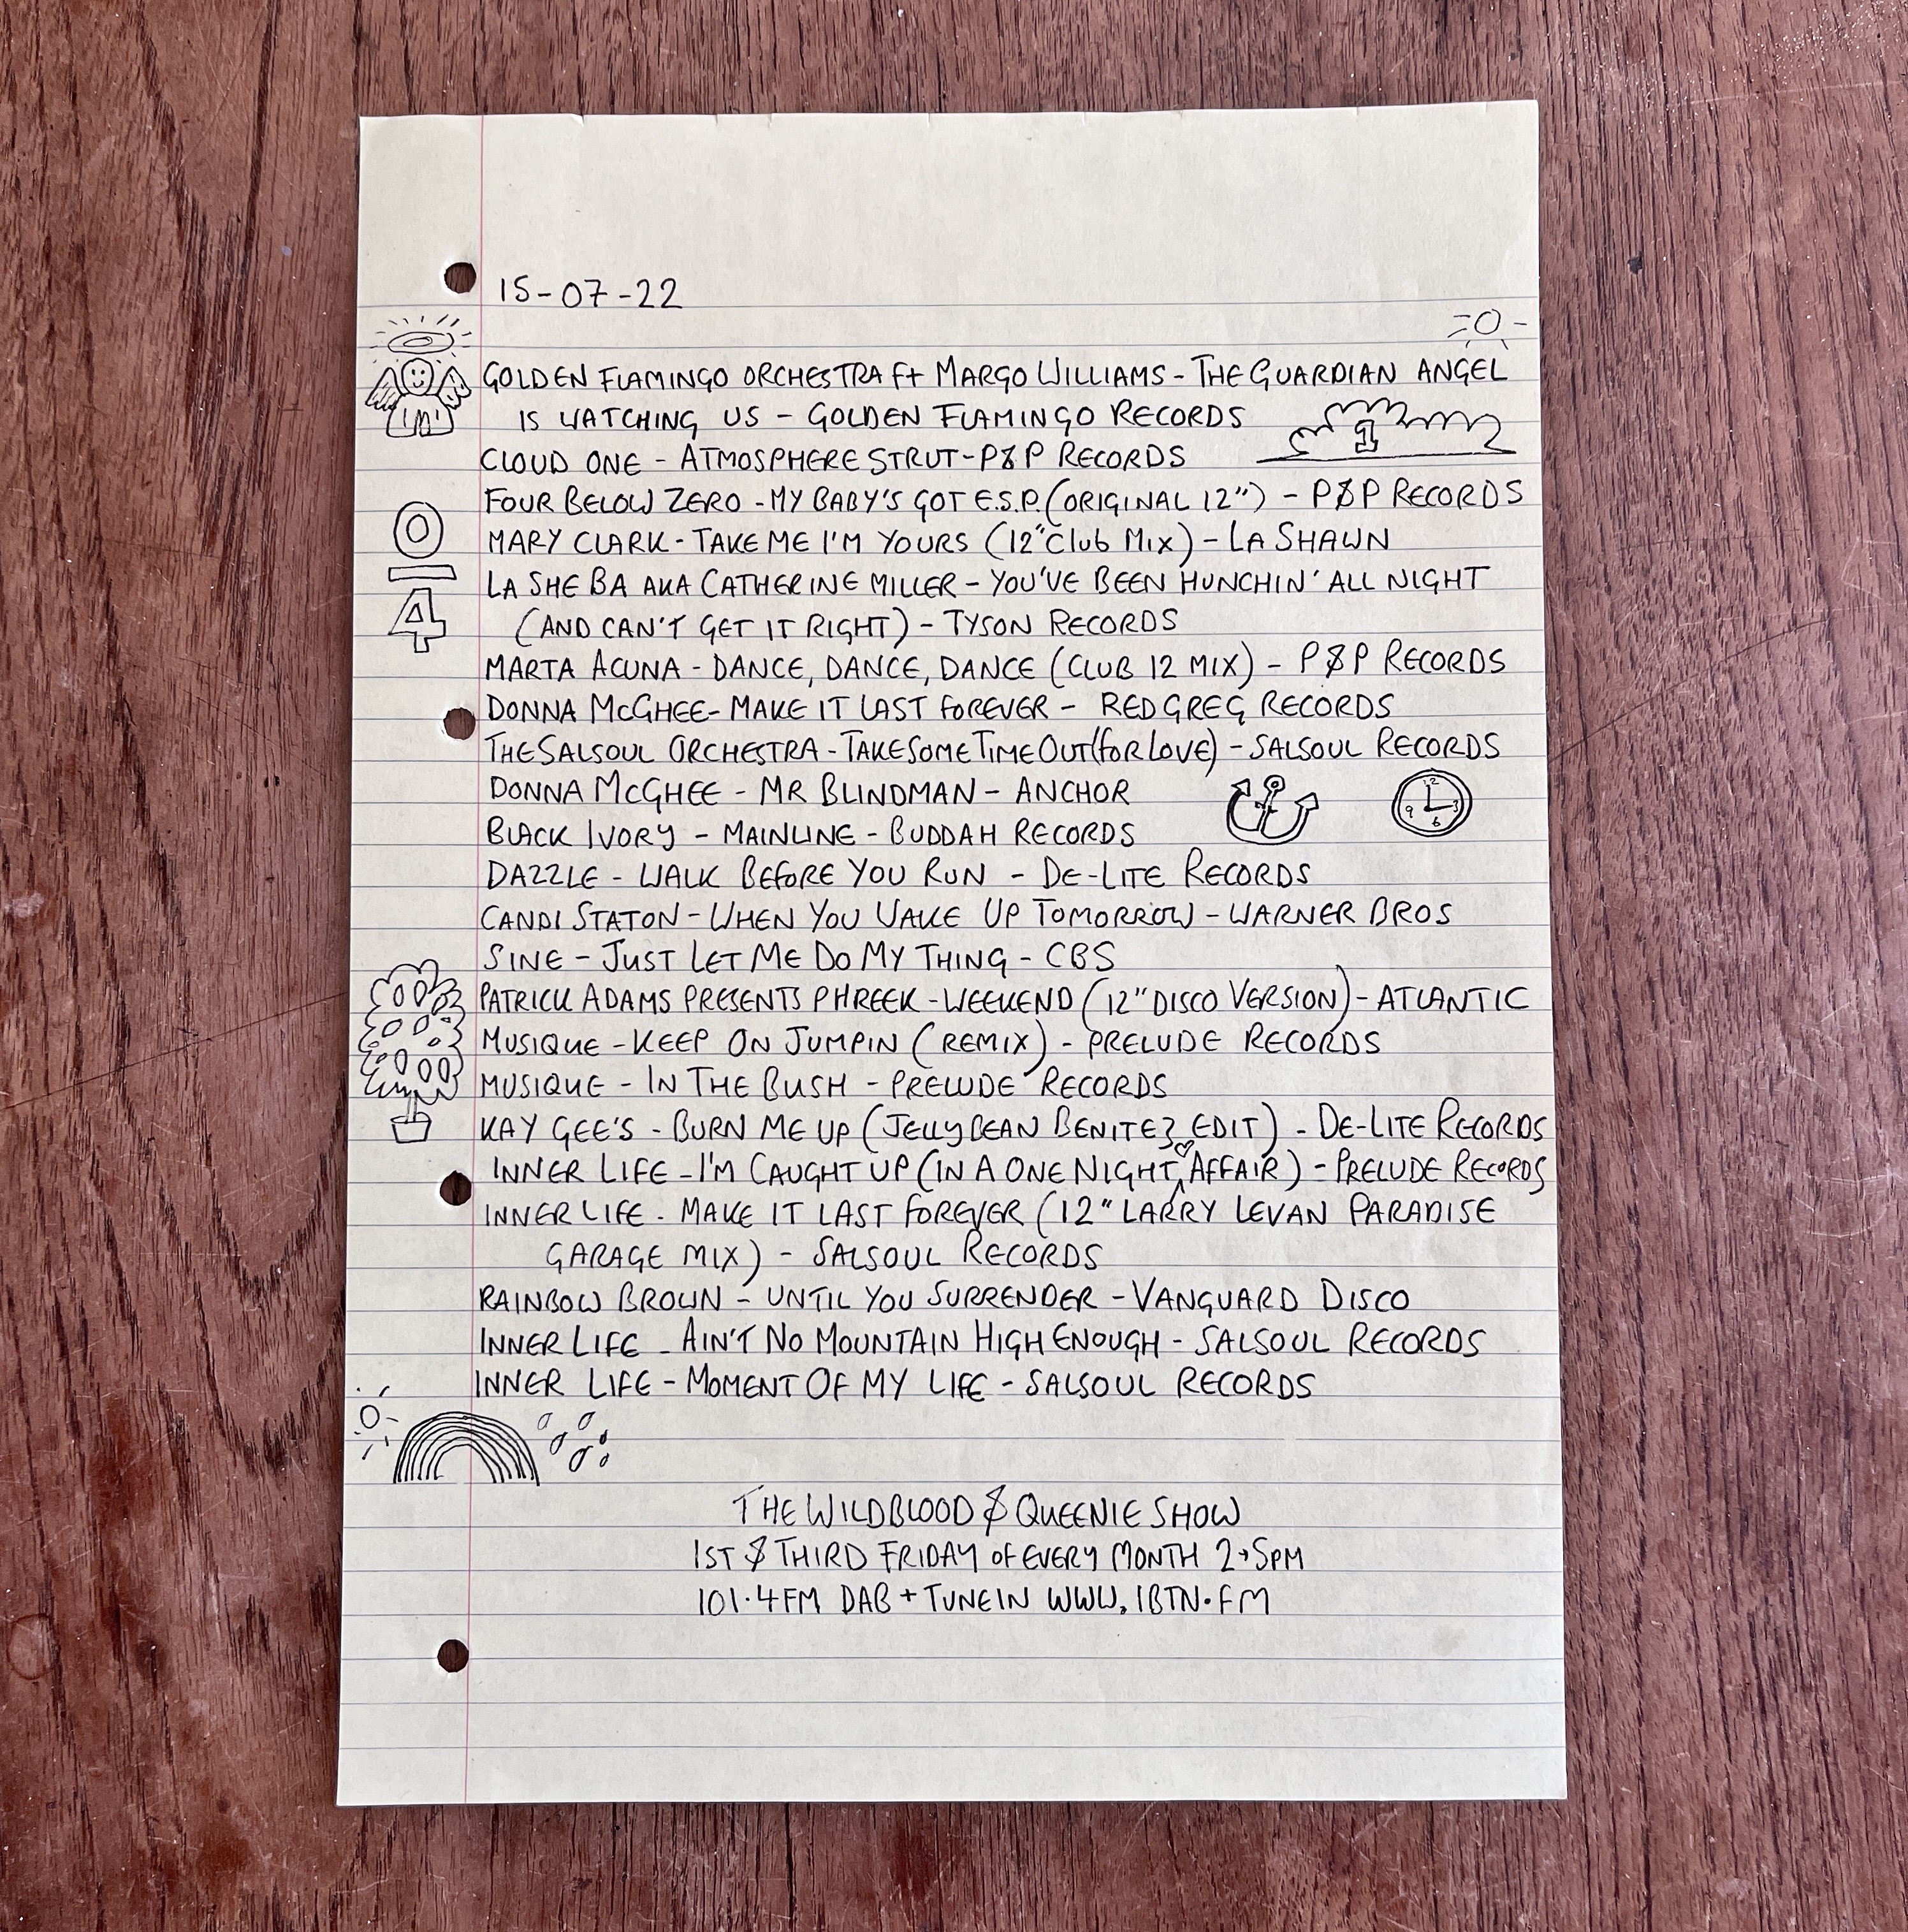 15-07-22
GOLDEN FLAMINGO ORCHESTRA Ft MARGO WILLIAMS - THE GUARDIAN ANGEL
IS WATCHING US - GOLDEN FLAMINGO RECORDS
1
CLOUD ONE - ATMOSPHERE STRUT - P&P RECORDS
FOUR BELOW ZERO - MY BABY'S GOT E.S.P. (ORIGINAL 12") - P&P RECORDS
0
MARY CLARK - TAKE ME I'M YOURS (12" Club Mix) - LA SHAWN
4
LA SHE BA AKA CATHERINE MILLER - YOU'VE BEEN HUNCHIN' ALL NIGHT
(AND CAN'T GET IT RIGHT) - TYSON RECORDS
MARTA ACUNA - DANCE, DANCE, DANCE (CLUB 12 MIX) - P&P RECORDS
DONNA McGHEE - MAKE IT LAST FOREVER - RED GREG RECORDS
THE SALSOUL ORCHESTRA - TAKE SOME TIME OUT (for LOVE) - SALSOUL RECORDS
DONNA McGHEE - MR BLINDMAN - ANCHOR
12 3 6 9
BLACK IVORY - MAINLINE - BUDDAH RECORDS
DAZZLE - WALK BEFORE YOU RUN - DE-LITE RECORDS
CANDI STATON - WHEN YOU WAKE UP TOMORROW - WARNER BROS
SINE - JUST LET ME DO MY THING - CBS
PATRICK ADAMS PRESENTS PHREEK - WEEKEND (12" DISCO VERSION) - ATLANTIC
MUSIQUE - KEEP ON JUMPIN (REMIX) - PRELUDE RECORDS
MUSIQUE - IN THE BUSH - PRELUDE RECORDS
KAY GEE'S - BURN ME UP (JELLYBEAN BENITEZ EDIT) - DE-LITE RECORDS
INNER LIFE - I'M CAUGHT UP (IN A ONE NIGHT ♡ AFFAIR) - PRELUDE RECORDS
INNER LIFE - MAKE IT LAST FOREVER (12" LARRY LEVAN PARADISE
GARAGE MIX) - SALSOUL RECORDS
RAINBOW BROWN - UNTIL YOU SURRENDER - VANGUARD DISCO
INNER LIFE - AIN'T NO MOUNTAIN HIGH ENOUGH - SALSOUL RECORDS
INNER LIFE - MOMENT OF MY LIFE - SALSOUL RECORDS
THE WILDBLOOD & QUEENIE SHOW
1ST & THIRD FRIDAY OF EVERY MONTH 2→5PM
101.4FM DAB + TUNEIN WWW.1BTN.FM